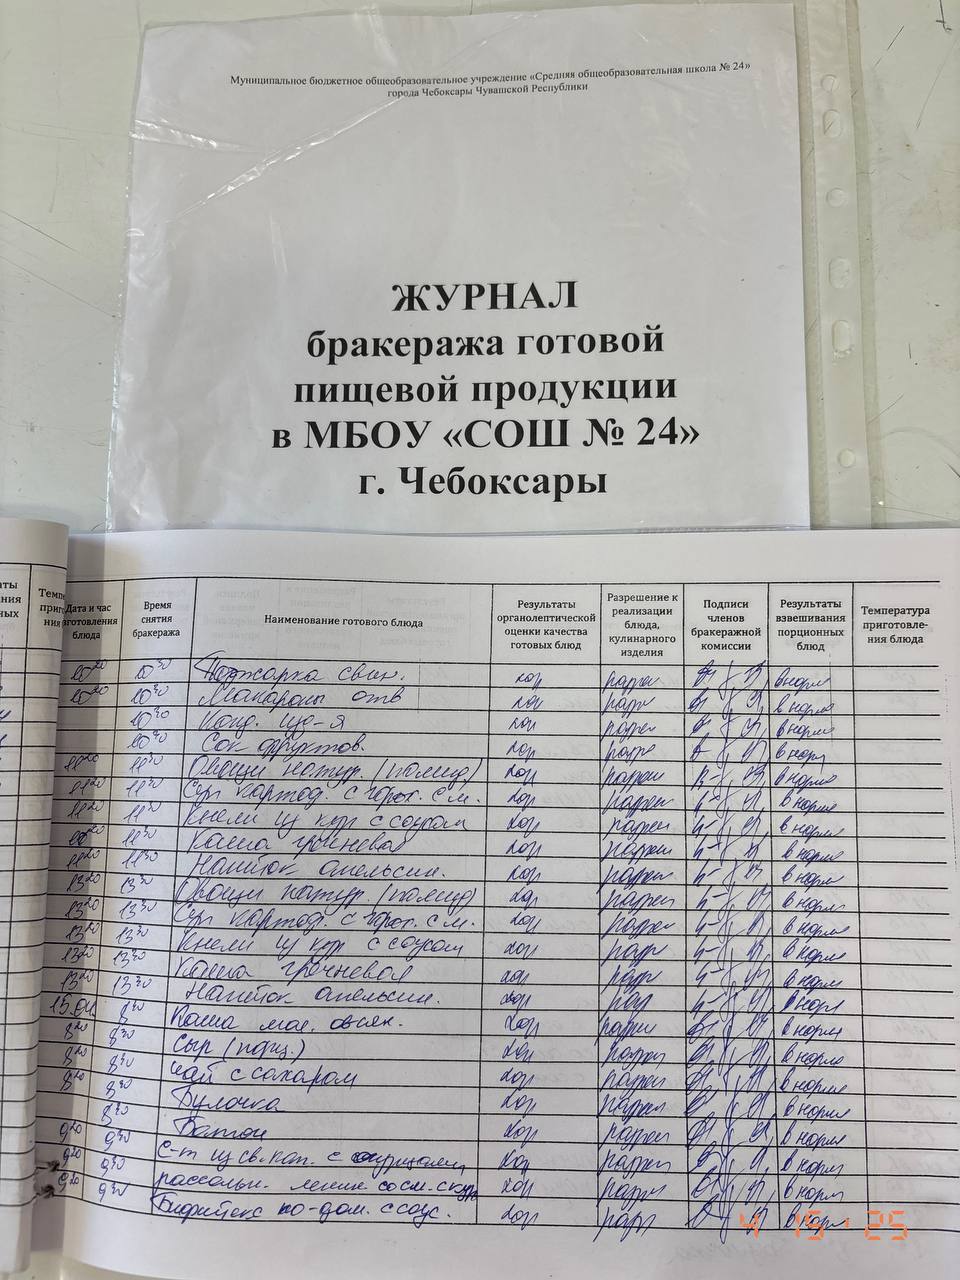 Муниципальное бюджетное общеобразовательное учреждение «Средняя общеобразовательная школа № 24»
города Чебоксары Чувашской Республики
ЖУРНАЛ
бракеража готовой
пищевой продукции
в МБОУ «СОШ № 24»
г. Чебоксары
Дата и час изготовления блюда Время снятия бракеража Наименование готового блюда Результаты органолептической оценки качества готовых блюд Разрешение к реализации блюда, кулинарного изделия Подписи членов бракеражной комиссии Результаты взвешивания порционных блюд Температура приготовле-ния блюда
10 20 10 30 Поджарка свин. хор разреш в норме
10 20 10 30 Макароны отв хор разр в норме
10 30 Конд. изд-я хор разреш в норме
10 30 Сок фруктов. хор разре в норм
11 20 11 30 Овощи натур. (помид) хор разреш в норме
11 20 11 30 Суп картоф. с горох. с м. хор разреш в норме
11 20 11 30 Кнели из кур с соусом хор разреш в норме
11 30 Каша гречневая хор разреш в норме
11 20 11 30 Напиток апельсин. хор разреш в норме
13 20 13 30 Овощи натур. (помид) хор разреш в норм
13 20 13 30 Суп картоф. с горох. с м. хор разреш в норме
13 20 13 30 Кнели из кур с соусом хор разр в норме
13 20 13 30 Каша гречневая хор разр в норм
13 20 13 30 Напиток апельсин. хор раз в норм
15.04 8 30 Каша мол. овсян. хор разреш в норме
8 20 8 30 Сыр (порц.) хор разреш в норме
8 20 8 30 Чай с сахаром хор разреш в норме
8 20 8 30 Булочка хор разреш в норме
8 30 Батон хор разреш в норме
9 20 9 30 С-т из св. кап. с хор разреш в норм
9 20 9 30 рассольн. ленин со см. хор разреш в норм
9 20 9 30 Бифштекс по-дом. с соус. хор разр в норм
4 15 '25